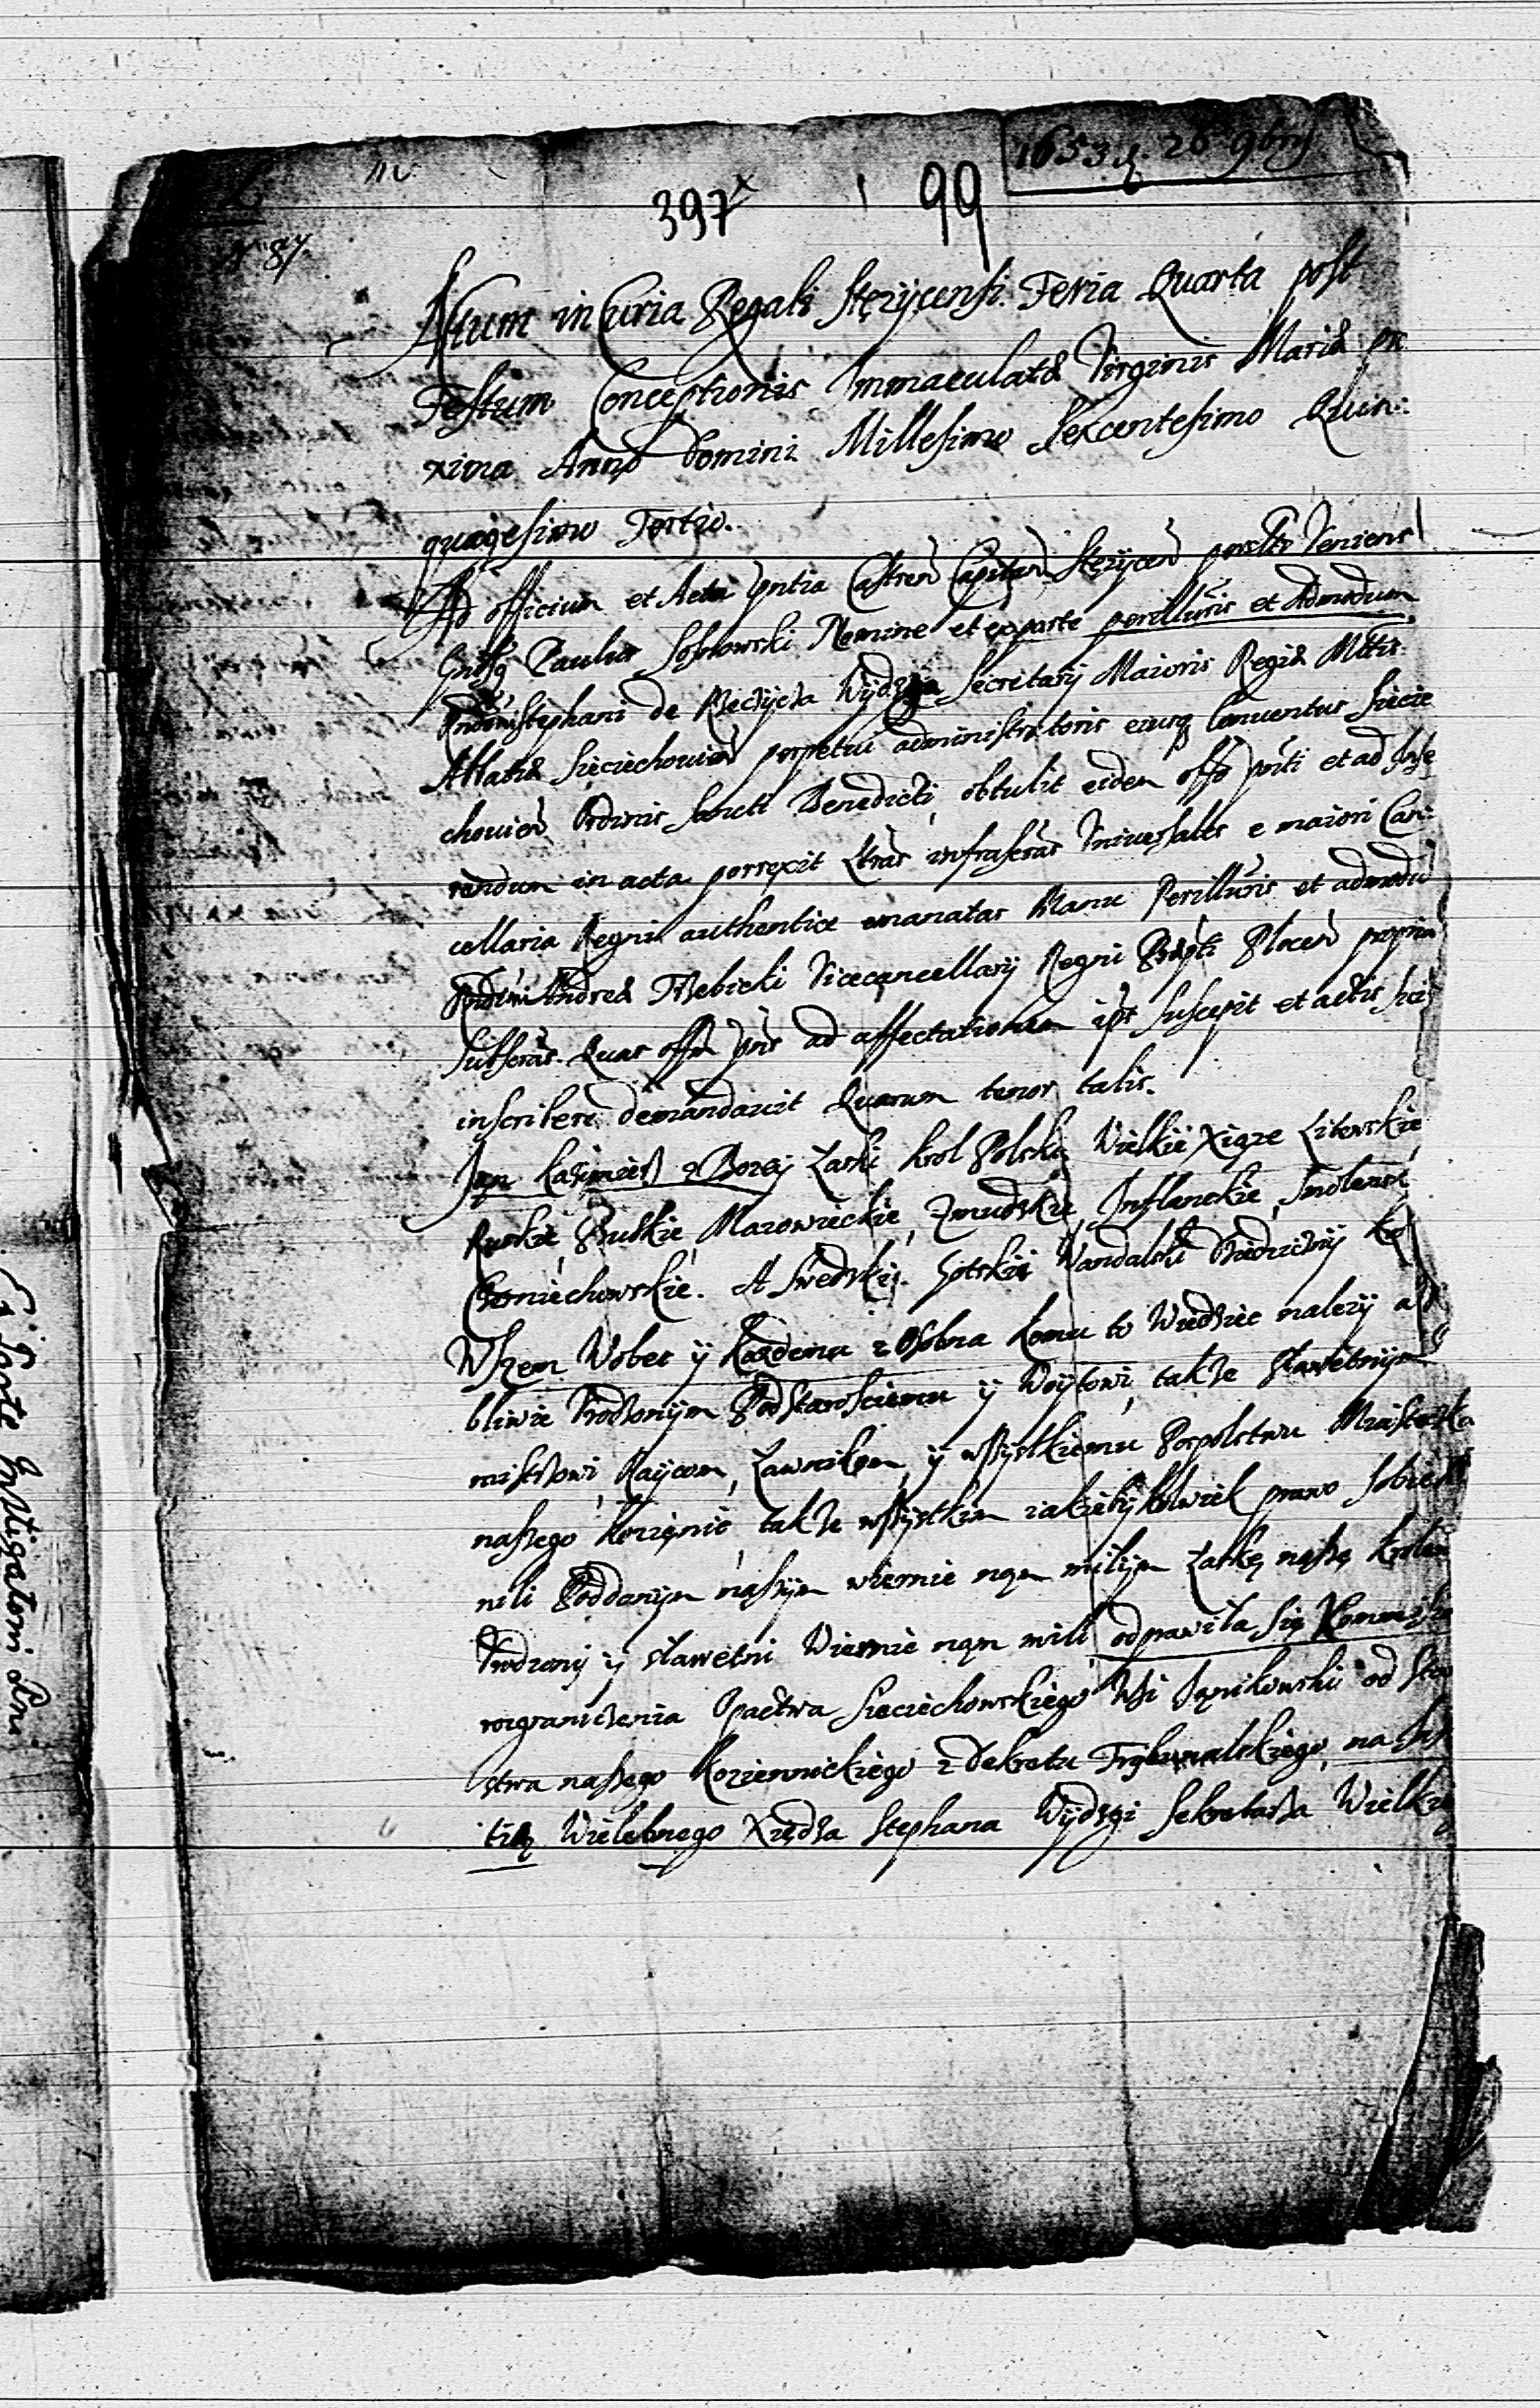 1653 d. 26 9bris
397x 99
N 87.
Actum in Curia Regali Stęzycensi. Feria Quarta post
Festum Conceptionis Immaculatæ Virginis Mariæ pro
xima Anno Domini Millesimo Sexcentesimo Quin:
quagesimo Tertio.
Ad officium et Acta pntia Castren Capitan Stęzycen personlr Veniens
Gnsus Paulus Sobnowski Nomine et ex parte perillustris et Admodum
Rndi Dni Stephani de Rzeczyca Wydzga Secretarij Maioris Regiæ Mttis.
Abbatiæ Sieciechovien perpetui administratoris eiusq Conventus Siecie
chovien Ordinis Sancti Benedicti, obtulit eidem offo pnti et ad Inse
rendum in acta porrexit Lras infrascras Universales e maiori Can:
cellaria Regni authentice emanatas Manu Perillustris et admodu
Rndi Dni Andreæ Trzebicki Vicecancellarij Regni Præpti Plocen propria
subscras. Quas offm pns ad affectationem ipsi suscepit et actis suis
inscribere demandavit Quarum tenor talis.
Jan Kazimierz z Bozey Łaski Krol Polski, Wielkie Xiąze Litewskie
Ruskie, Pruskie, Mazowieckie, Zmudzkie, Inflanckie, Smolensk
Czerniechowskie. A Swedzki. Gotski Wandalski Dziedziczny Kr
Wszem Wobec y Kazdemu z Osobna komu to Wiedziec nalezy a
bliwie Urodzonym Podstarosciemu y Woytowi, takze Sławetnym
mistrzowi, Raycom, Ławnikom, y wszystkiemu Pospolstwu Miasteczka
naszego Kozienic, takze wszystkim iakiebykolwiek prawo sobie
nili Poddanym naszym wiernie nam miłym Łaskę naszę Krolew
Urodzony y sławetni Wiernie nam mili, odprawiła się Kommissia
rozgraniczenia Opactwa Sieciechowskiego Wsi Janikowski od Staro
stwa naszego Koziennickiego z Dekretu Trybunalskiego, na Ins
tią Wielebnego Xiędza Stephana Wydzgi Sekretarza Wielkie